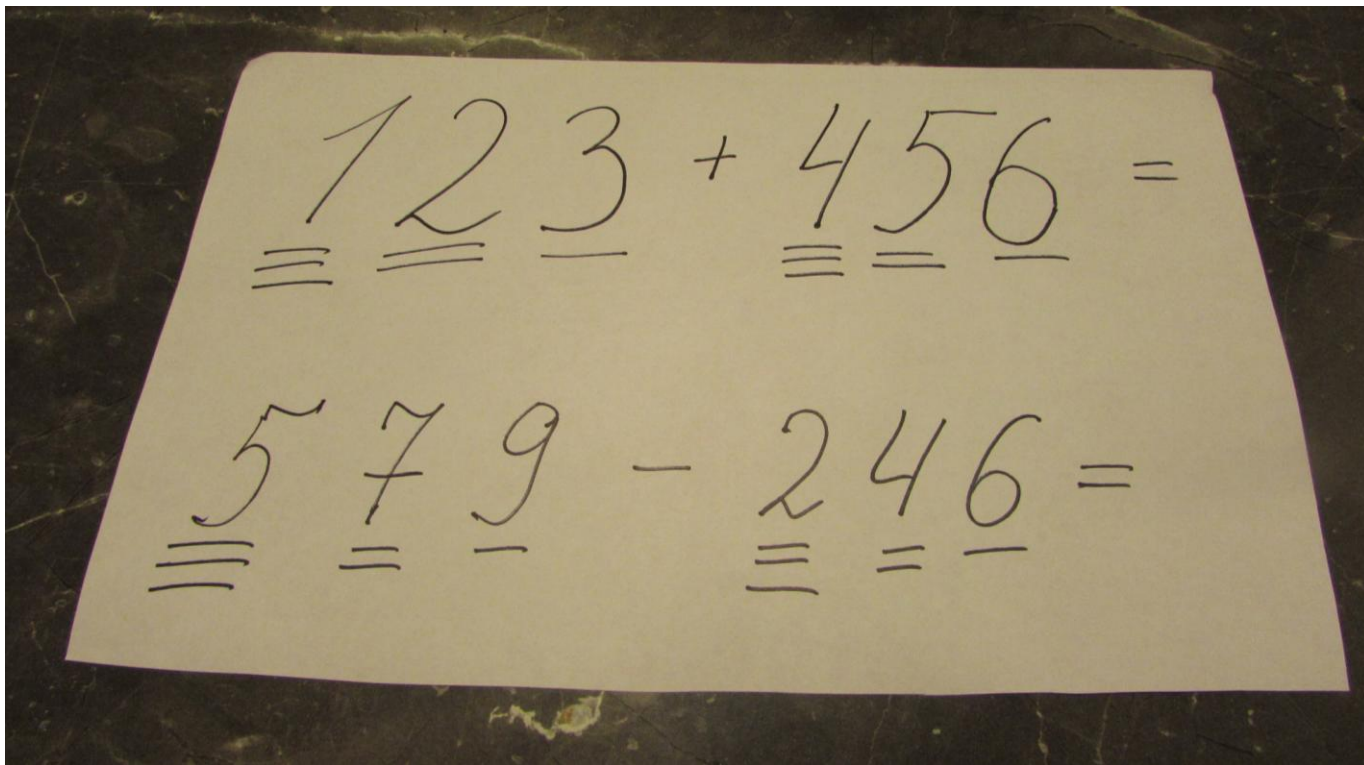 123 + 456 =
579 - 246 =